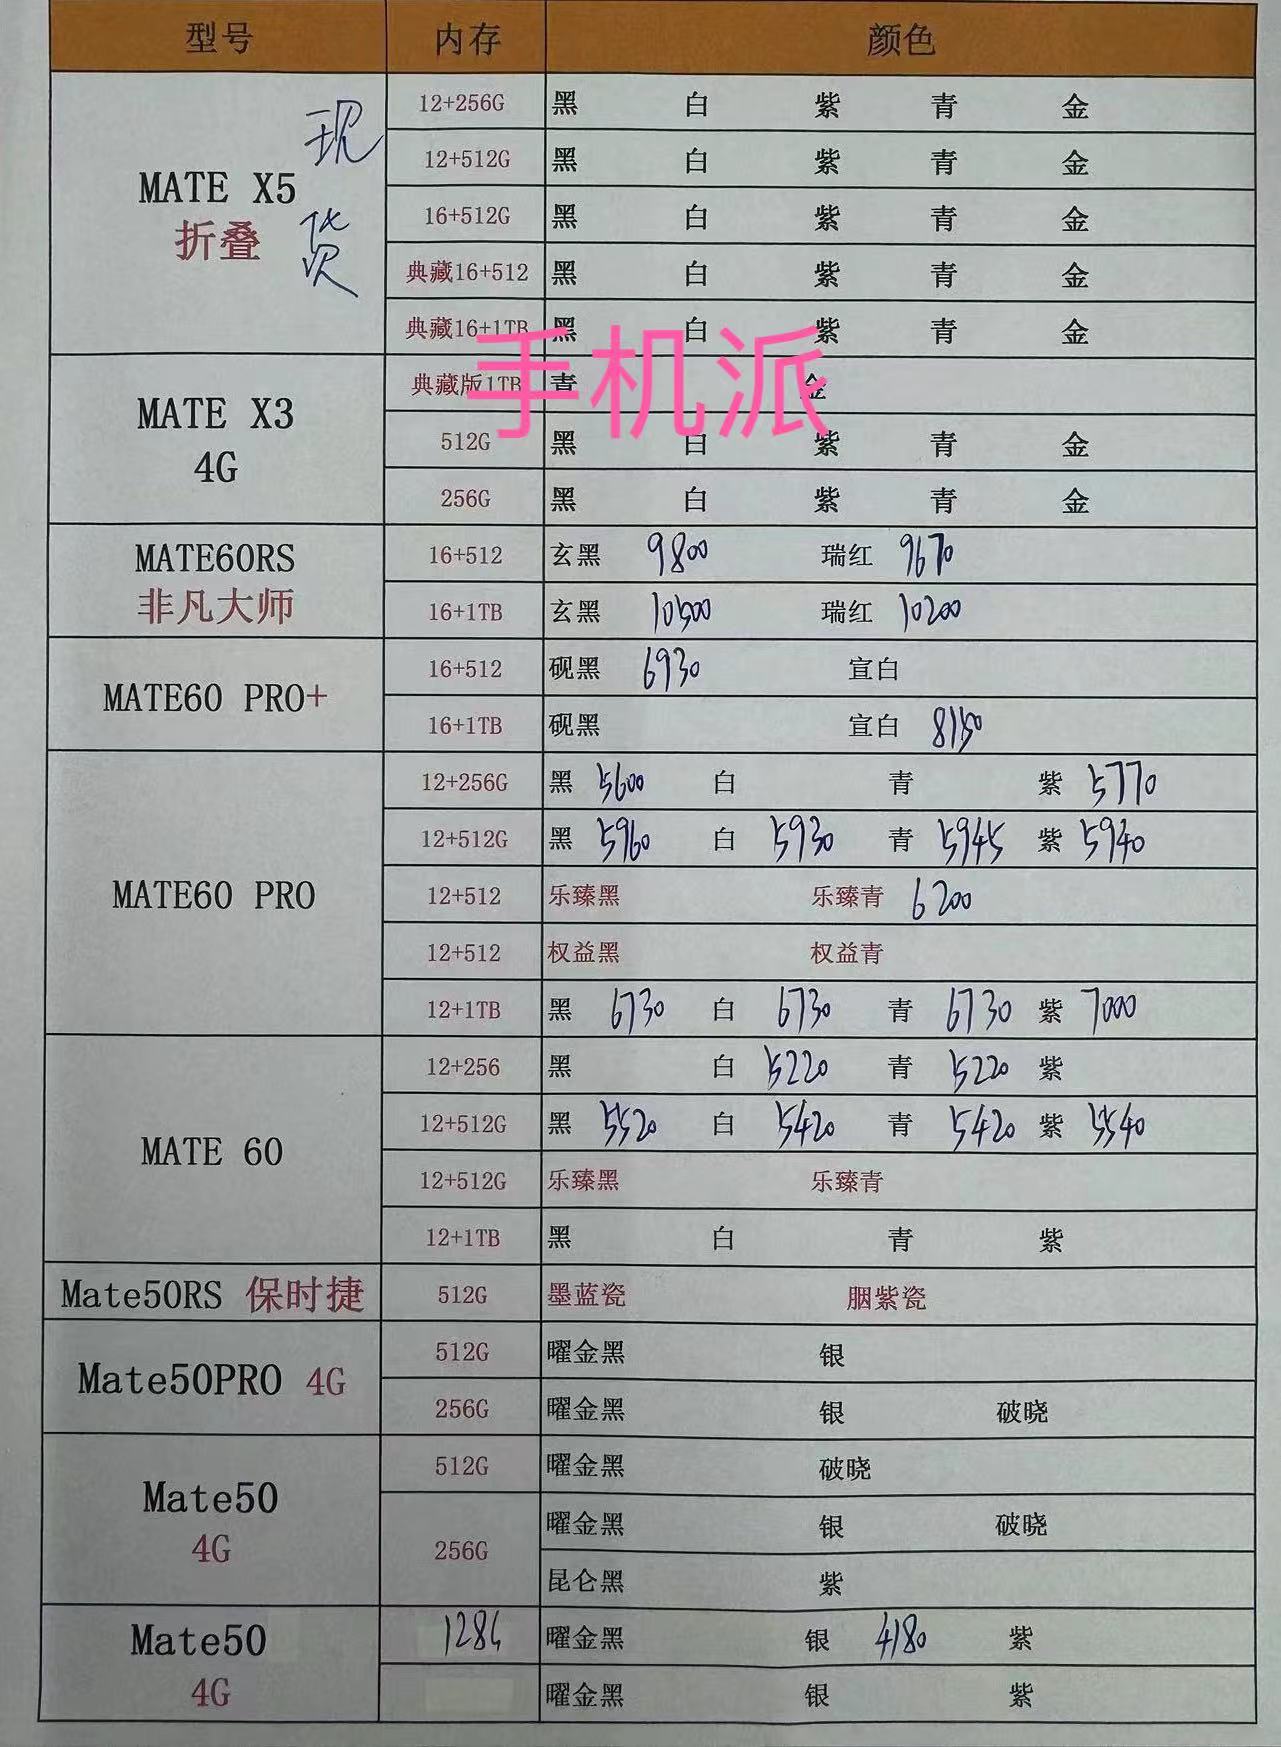 型号 内存 颜色
MATE X5 折叠 现货
12+256G 黑 白 紫 青 金
12+512G 黑 白 紫 青 金
16+512G 黑 白 紫 青 金
典藏16+512 黑 白 紫 青 金
典藏16+1TB 黑 白 紫 青 金
手机派
MATE X3 4G
典藏版1TB 青 金
512G 黑 白 紫 青 金
256G 黑 白 紫 青 金
MATE60RS 非凡大师
16+512 玄黑 9800 瑞红 9670
16+1TB 玄黑 10500 瑞红 10200
MATE60 PRO+
16+512 砚黑 6930 宣白
16+1TB 砚黑 宣白 8150
MATE60 PRO
12+256G 黑 5600 白 青 紫 5770
12+512G 黑 5960 白 5930 青 5945 紫 5940
12+512 乐臻黑 乐臻青 6200
12+512 权益黑 权益青
12+1TB 黑 6730 白 6730 青 6730 紫 7000
MATE 60
12+256 黑 白 5220 青 5220 紫
12+512G 黑 5520 白 5420 青 5420 紫 5540
12+512G 乐臻黑 乐臻青
12+1TB 黑 白 青 紫
Mate50RS 保时捷 512G 墨蓝瓷 胭紫瓷
Mate50PRO 4G
512G 曜金黑 银
256G 曜金黑 银 破晓
Mate50 4G
512G 曜金黑 破晓
256G 曜金黑 银 破晓
昆仑黑 紫
Mate50 4G
128G 曜金黑 银 4180 紫
曜金黑 银 紫